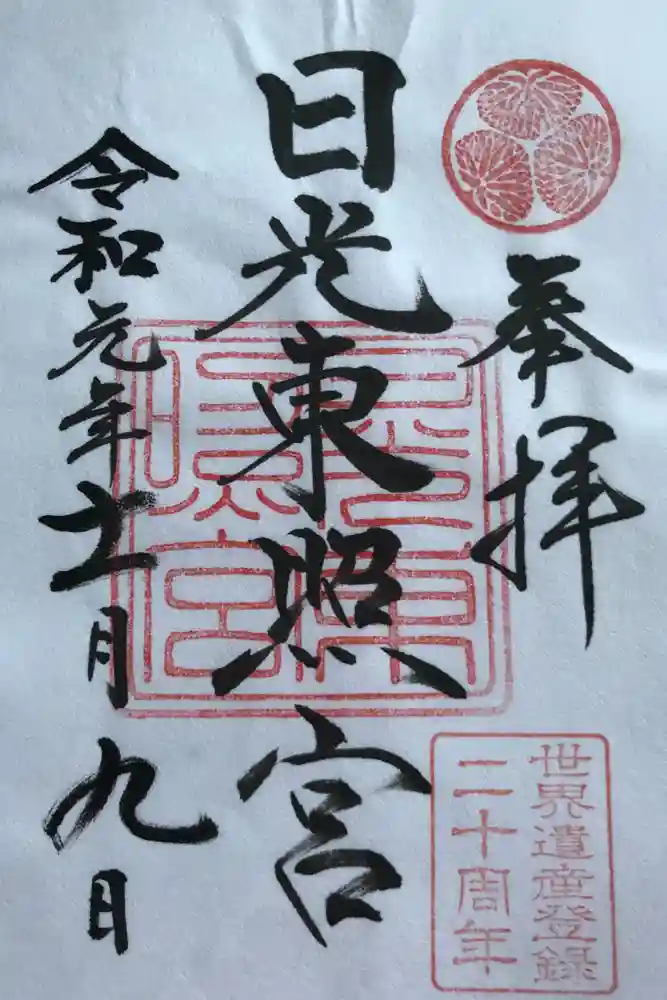 奉拝
日光東照宮
令和元年十一月九日
世界遺産登録
二十周年